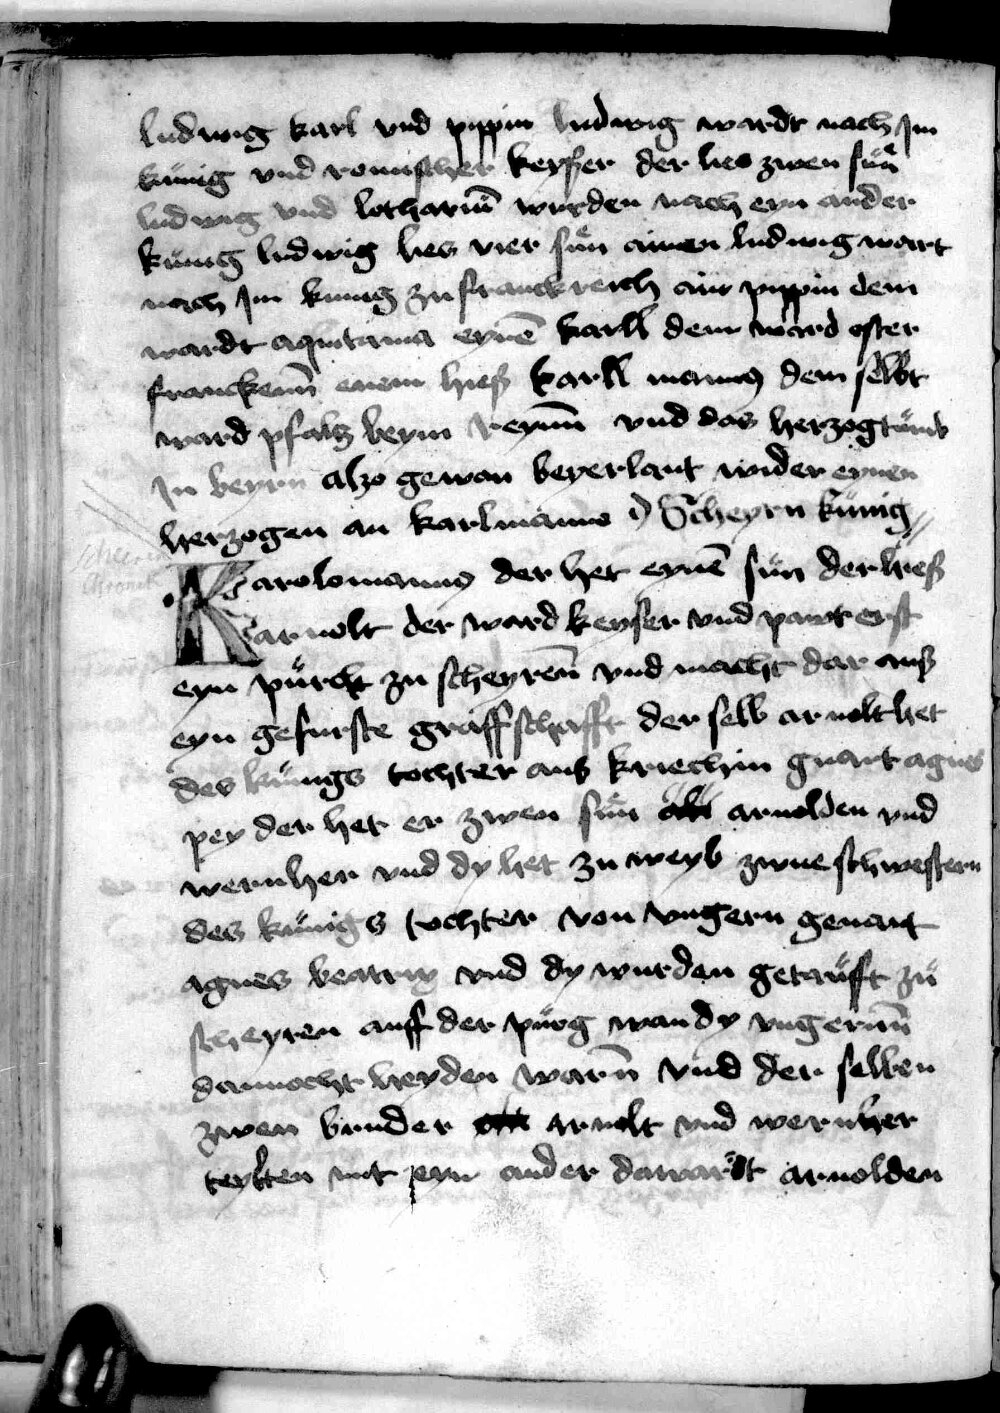 ludwig karl vnd pippin ludwig wardt nach Im
künig vnd romischer keyser der lies zwen sün
ludwig vnd lotharium wurden nach eyn ander
künig ludwig lies vier sün ainen ludwig wart
nach Im kunig zu franckreich ain pippin dem
wardt aquitania eynē karll dem ward oster
franckenn enem hieß karll manus dem selbt
ward pfaltz beym reynnn vnd das herzogtüm
In beyrn alzo gewan beyerlant wider eynen
herzogen an karlmanno Scheyrn künig
Karolomanus der het eynē sün der hieß
arnolt der ward keyser vnd pawt erst
eyn pürckt zu scheyrenn vnd macht dar auß
eyn gefurste graffschafft der selb arnolt het
des künigs tochter auß kriechin gnart agnes
pey der het er zwen sün arnolden vnd
wernher vnd dy het zu weyb zwue schwestern
des künigs tochter von vngern genant
agnes beatrix vnd dy wurden getaüft zü
scheyren auff der pürg wan dy vngernn
dannocht heyden warn vnd der selben
zwen bruder arnolt vnd wernher
teylten mit eyn ander da wardt arnolden